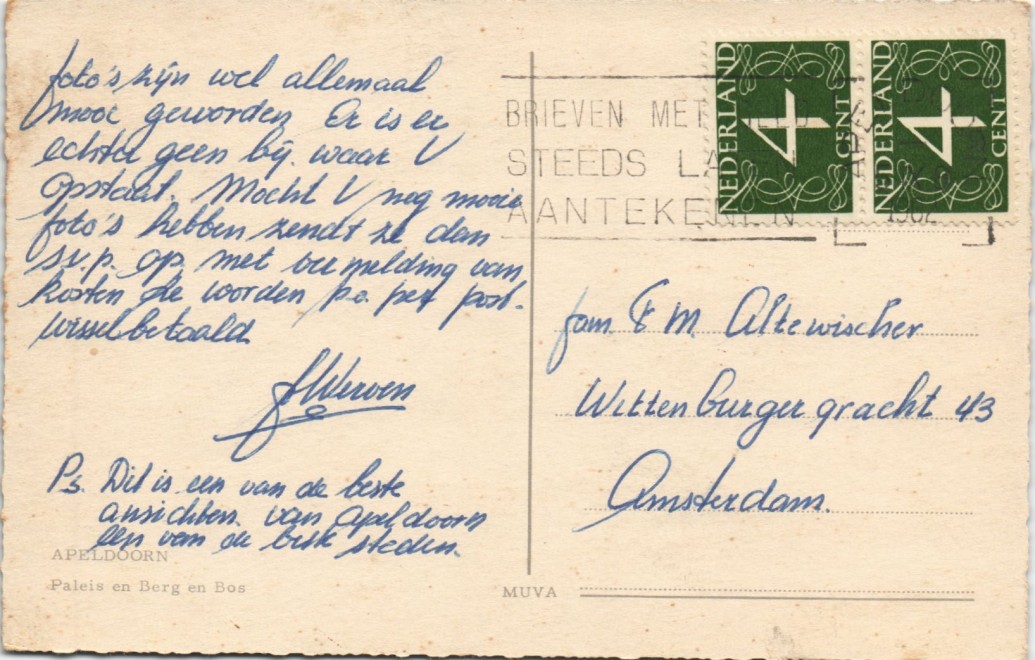 foto's zijn wel allemaal
mooi geworden Er is er
echter geen bij. waar U
opstaat. Mocht U nog mooie
foto's hebben zendt ze dan
s.v.p. op met vermelding van
kosten die worden p.o. per post-
wissel betaald
JWerven
Ps. Dit is een van de beste
ansichten. van Apeldoorn
een van de beste steden.
APELDOORN
Paleis en Berg en Bos
MUVA
BRIEVEN MET GELD
STEEDS LATEN
AANTEKENEN
NEDERLAND
4
CENT
NEDERLAND
4
CENT
1962
fam F M. Altewischer
Wittenburgergracht 43
Amsterdam.